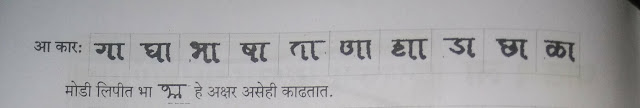 आ कार: गा घा भा षा ता णा डा छा ळा
मोडी लिपीत भा हे अक्षर असेही काढतात.